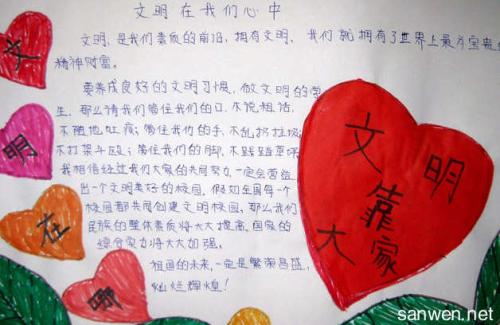 文明在我们心中
文明,是我们素质的前沿,拥有文明、我们就拥有了世界上最为宝贵的
精神财富。
要养成良好的文明习惯,做文明的学
生,那么请我们管住我们的口、不说粗话,
不随地吐痰;管住我们的手,不乱扔垃圾;
不打架斗殴;管住我们的脚,不践踏草坪
我相信经过我们大家的共同努力一定会营造
出一个文明美好的校园,假如全国每一个
校园都共同创建文明校园,那么我们
民族的整体素质将大大提高,国家的
综合实力将大大加强。
祖国的未来,一定是繁荣昌盛,
灿烂辉煌!
文
明
在
哪
文明
靠
大家
sanwen.net